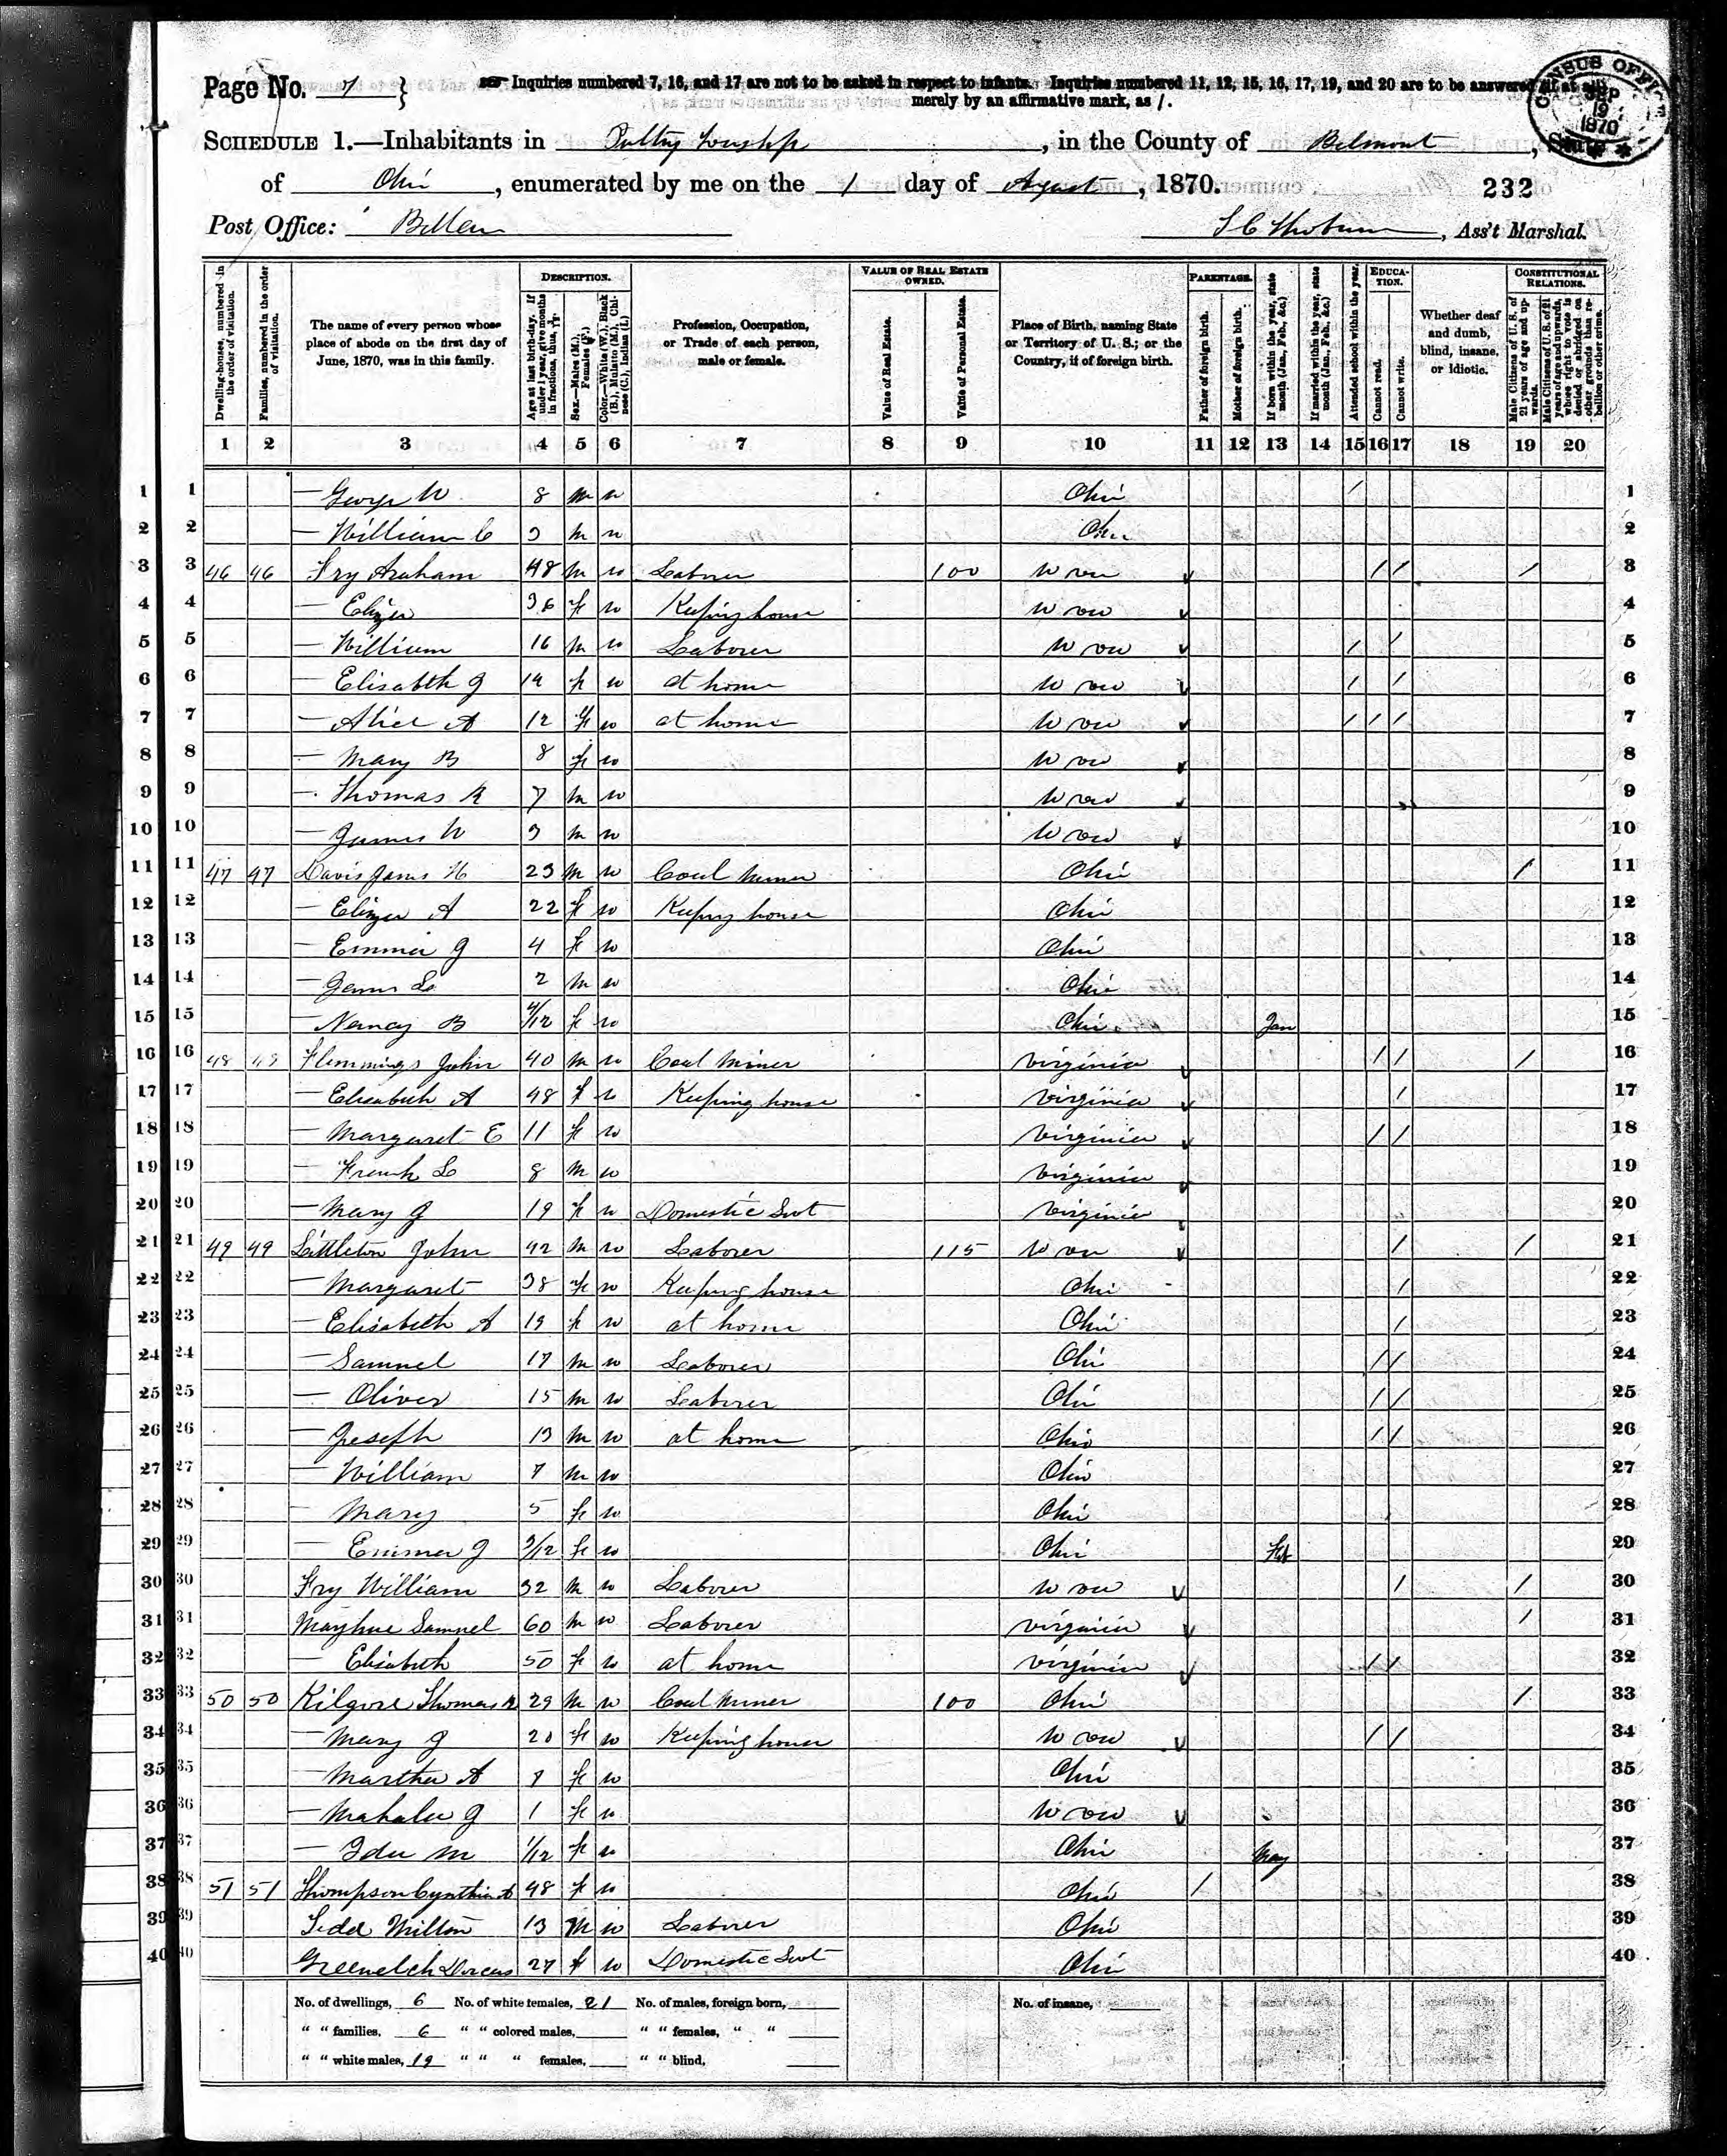 Page No. 7 } Inquiries numbered 7, 16, and 17 are not to be asked in respect to infants. Inquiries numbered 11, 12, 15, 16, 17, 19, and 20 are to be answered
merely by an affirmative mark, as /.
CENSUS OFFICE SEP 19 1870
SCHEDULE 1.—Inhabitants in Pultny Township, in the County of Belmont, State
of Ohio, enumerated by me on the 1 day of August, 1870. 232
Post Office: Bellair , Ass't Marshal.
Dwelling-houses, numbered in the order of visitation.
Families, numbered in the order of visitation.
The name of every person whose place of abode on the first day of June, 1870, was in this family.
DESCRIPTION.
Age at last birth-day. If under 1 year, give months in fractions, thus,
Sex.—Males (M.), Females (F.)
Color.—White (W.), Black (B.), Mulatto (M.), Chinese (C.), Indian (I.)
Profession, Occupation, or Trade of each person, male or female.
VALUE OF REAL ESTATE OWNED.
Value of Real Estate.
Value of Personal Estate.
Place of Birth, naming State or Territory of U. S.; or the Country, if of foreign birth.
PARENTAGE.
Father of foreign birth.
Mother of foreign birth.
If born within the year, state month (Jan., Feb., &c.)
If married within the year, state month (Jan., Feb., &c.)
Attended school within the year.
EDUCATION.
Cannot read.
Cannot write.
Whether deaf and dumb, blind, insane, or idiotic.
CONSTITUTIONAL RELATIONS.
Male Citizens of U. S. of 21 years of age and upwards.
Male Citizens of U. S. of 21 years of age and upwards, whose right to vote is denied or abridged on other grounds than rebellion or other crime.
1 2 3 4 5 6 7 8 9 10 11 12 13 14 15 16 17 18 19 20
1 1 — George W 8 m w Ohio / 1
2 2 — William C 3 m w Ohio 2
3 3 46 46 Fry Araham 48 m w Laborer 100 W va / / / 3
4 4 — Elizer 36 F w Keeping house W va 4
5 5 — William 16 m w Laborer W va / / 5
6 6 — Elisabth J 14 F w at home W va / / 6
7 7 — Alice A 12 F w at home W va / / / 7
8 8 — Mary B 8 F w W va 8
9 9 — Thomas R 7 m w W va 9
10 10 — James W 3 m w W va 10
11 11 47 47 Davis James H 23 m w Coal miner Ohio / 11
12 12 — Elizer A 22 F w Keeping house Ohio 12
13 13 — Emma J 4 F w Ohio 13
14 14 — James L 2 m w Ohio 14
15 15 — Nancy B 4/12 F w Ohio Jan 15
16 16 48 48 Flemmings John 40 m w Coal miner Virginia / / / 16
17 17 — Elisabeth A 48 F w Keeping house Virginia / 17
18 18 — Margaret E 11 F w Virginia / / 18
19 19 — Frank L 8 m w Virginia 19
20 20 — Mary J 19 F w Domestic Svt Virginia 20
21 21 49 49 Littleton John 42 m w Laborer 115 W va / / 21
22 22 — Margaret 38 F w Keeping house Ohio / 22
23 23 — Elisabeth A 19 F w at home Ohio / 23
24 24 — Samuel 17 m w Laborer Ohio / / 24
25 25 — Oliver 15 m w Laborer Ohio / / 25
26 26 — Joseph 13 m w at home Ohio / / 26
27 27 — William 7 m w Ohio 27
28 28 — Mary 5 F w Ohio 28
29 29 — Emmer J 3/12 F w Ohio Feb 29
30 30 Fry William 32 m w Laborer W va / / 30
31 31 Mayhue Samuel 60 m w Laborer Virginia / 31
32 32 — Elisabeth 50 F w at home Virginia / / 32
33 33 50 50 Kilgore Thomas 29 m w Coal miner 100 Ohio / 33
34 34 — Mary J 20 F w Keeping house W va / / 34
35 35 — Martha A 7 F w Ohio 35
36 36 — Mahala J 1 F w W va 36
37 37 — Ida M 1/12 F w Ohio May 37
38 38 51 51 Thompson Cynthia A 48 F w Ohio / 38
39 39 Tedd Milton 13 M w Laborer Ohio 39
40 40 Dorcus 27 F w Domestic Svt Ohio 40
No. of dwellings, 6 No. of white females, 21 No. of males, foreign born, No. of insane,
" " families, 6 " " colored males, " " females, " "
" " white males, 19 " " " females, " " blind,